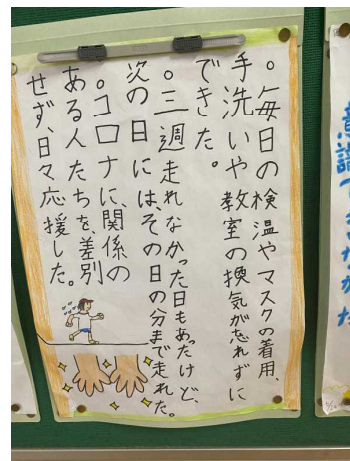 。毎日の検温やマスクの着用、
手洗いや教室の換気が忘れずに
できた。
。三週走れなかった日もあったけど、
次の日には、その日の分まで走れた。
。コロナに、関係の
ある人たちを、差別
せず、日々応援した。